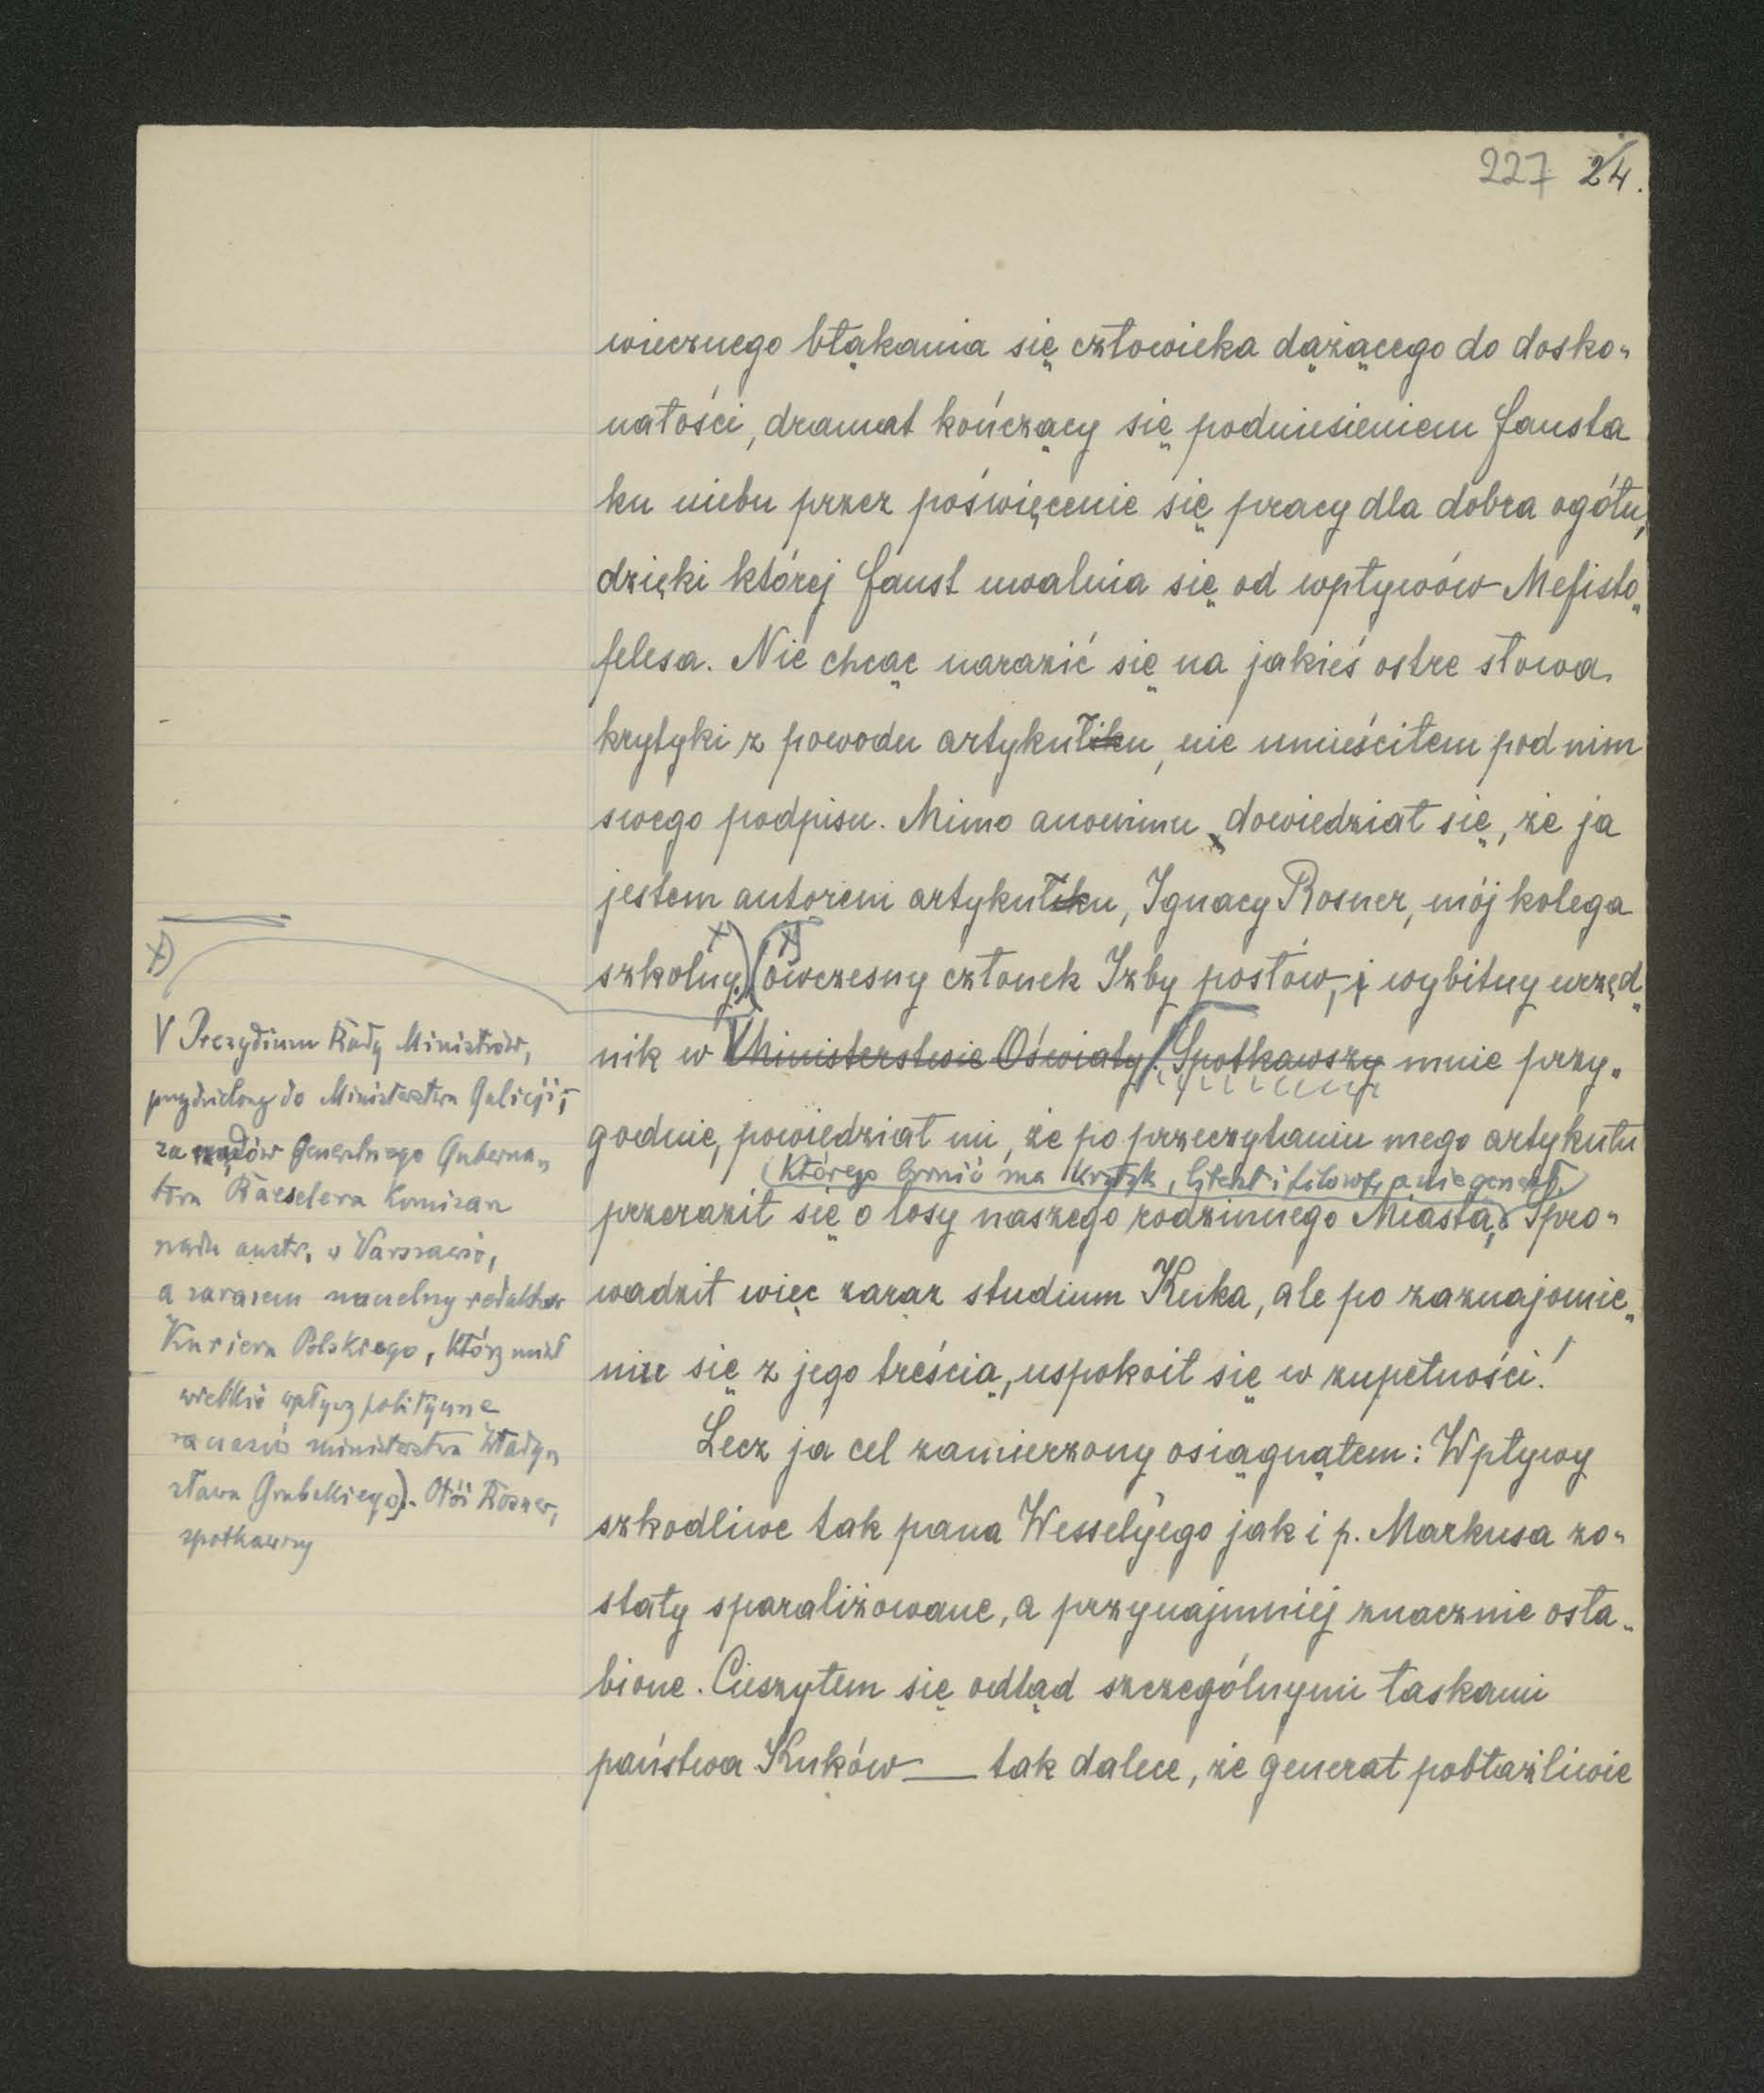 227 24.
wiecznego błąkania się człowieka dążącego do dosko-
nałości, dramat kończący się podniesieniem Fausta
ku niebu przez poświęcenie się pracy dla dobra ogółu,
dzięki której Faust uwalnia się od wpływów Mefisto-
felesa. Nie chcąc narazić się na jakieś ostre słowa
krytyki z powodu artykuliku, nie umieściłem pod nim
swego podpisu. Mimo anonimu dowiedział się, że ja
jestem autorem artykuliku, Ignacy Rosner, mój kolega
szkolny x) (x) ówczesny członek Izby posłów, i wybitny urzęd-
nik w Ministerstwie Oświaty). Spotkawszy mnie przy-
godnie, powiedział mi, że po przeczytaniu mego artykułu
(którego bronić ma krytyk, literat i filozof, a nie generał.)
przeraził się o losy naszego rodzinnego Miasta, Spro-
wadził więc zaraz studium Kuka, ale po zaznajomie-
niu się z jego treścią, uspokoił się w zupełności!
Lecz ja cel zamierzony osiągnąłem: Wpływy
szkodliwe tak pana Wessely'ego jak i p. Markusa zo-
stały sparaliżowane, a przynajmniej znacznie osła-
bione. Cieszyłem się odtąd szczególnymi łaskami
państwa Kuków — tak dalece, że generał pobłażliwie
x)
V Prezydium Rady Ministrów,
przydzielony do Ministerstwa Galicji,
za rządów Generalnego Guberna-
tora Baeselera Komisarz
rządu austr. w Warszawie,
a zarazem naczelny redaktor
Kuriera Polskiego, który miał
wielkie wpływy polityczne
za czasów ministerstwa Włady-
sława Grabskiego). Otóż Rosner,
spotkawszy